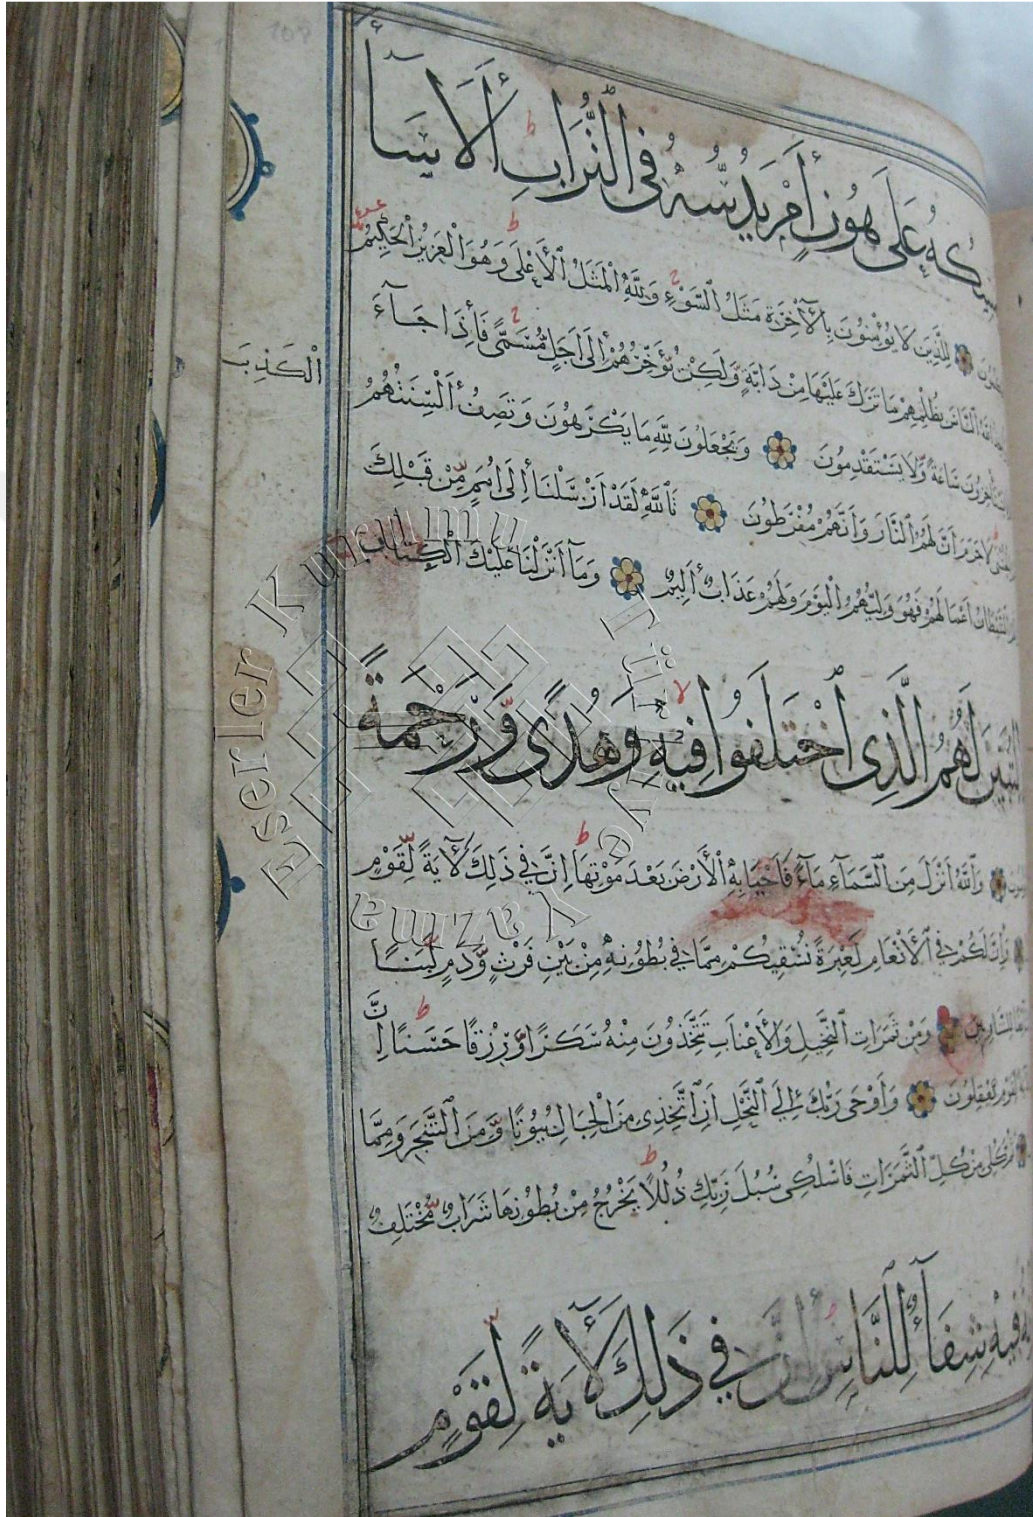 عَلَى هُونٍ أَمْ يَدُسُّهُ فِى التُّرَابِ أَلَا سَآ
لِلَّذِينَ لَا يُؤْمِنُونَ بِالْآخِرَةِ مَثَلُ السَّوْءِ وَلِلَّهِ الْمَثَلُ الْأَعْلَى وَهُوَ الْعَزِيزُ الْحَكِيمُ
النَّاسَ بِظُلْمِهِمْ مَا تَرَكَ عَلَيْهَا مِنْ دَابَّةٍ وَّلَكِنْ يُؤَخِّرُهُمْ إِلَى أَجَلٍ مُّسَمًّى فَإِذَا جَآءَ
سَاعَةً وَّلَا يَسْتَقْدِمُونَ وَيَجْعَلُونَ لِلَّهِ مَا يَكْرَهُونَ وَتَصِفُ أَلْسِنَتُهُمُ
الْكَذِبَ
لَا جَرَمَ أَنَّ لَهُمُ النَّارَ وَأَنَّهُمْ مُفْرَطُونَ تَاللَّهِ لَقَدْ أَرْسَلْنَا إِلَى أُمَمٍ مِّنْ قَبْلِكَ
الشَّيْطَانُ أَعْمَالَهُمْ فَهُوَ وَلِيُّهُمُ الْيَوْمَ وَلَهُمْ عَذَابٌ أَلِيمٌ وَمَآ أَنْزَلْنَا عَلَيْكَ الْكِتَابَ
لَهُمُ الَّذِى اخْتَلَفُوا فِيهِ وَهُدًى وَّرَحْمَةً
وَاللَّهُ أَنْزَلَ مِنَ السَّمَآءِ مَآءً فَأَحْيَا بِهِ الْأَرْضَ بَعْدَ مَوْتِهَا إِنَّ فِى ذَلِكَ لَآيَةً لِّقَوْمٍ
وَإِنَّ لَكُمْ فِى الْأَنْعَامِ لَعِبْرَةً نُسْقِيكُمْ مِمَّا فِى بُطُونِهِ مِنْ بَيْنِ فَرْثٍ وَّدَمٍ لَّبَنًا
لِلشَّارِبِينَ وَمِنْ ثَمَرَاتِ النَّخِيلِ وَالْأَعْنَابِ تَتَّخِذُونَ مِنْهُ سَكَرًا وَّرِزْقًا حَسَنًا إِنَّ
يَعْقِلُونَ وَأَوْحَى رَبُّكَ إِلَى النَّحْلِ أَنِ اتَّخِذِى مِنَ الْجِبَالِ بُيُوتًا وَّمِنَ الشَّجَرِ وَمِمَّا
كُلِى مِنْ كُلِّ الثَّمَرَاتِ فَاسْلُكِى سُبُلَ رَبِّكِ ذُلُلًا يَخْرُجُ مِنْ بُطُونِهَا شَرَابٌ مُّخْتَلِفٌ
فِيهِ شِفَآءٌ لِلنَّاسِ إِنَّ فِى ذَلِكَ لَآيَةً لِّقَوْمٍ
Türkiye Yazma Eserler Kurumu